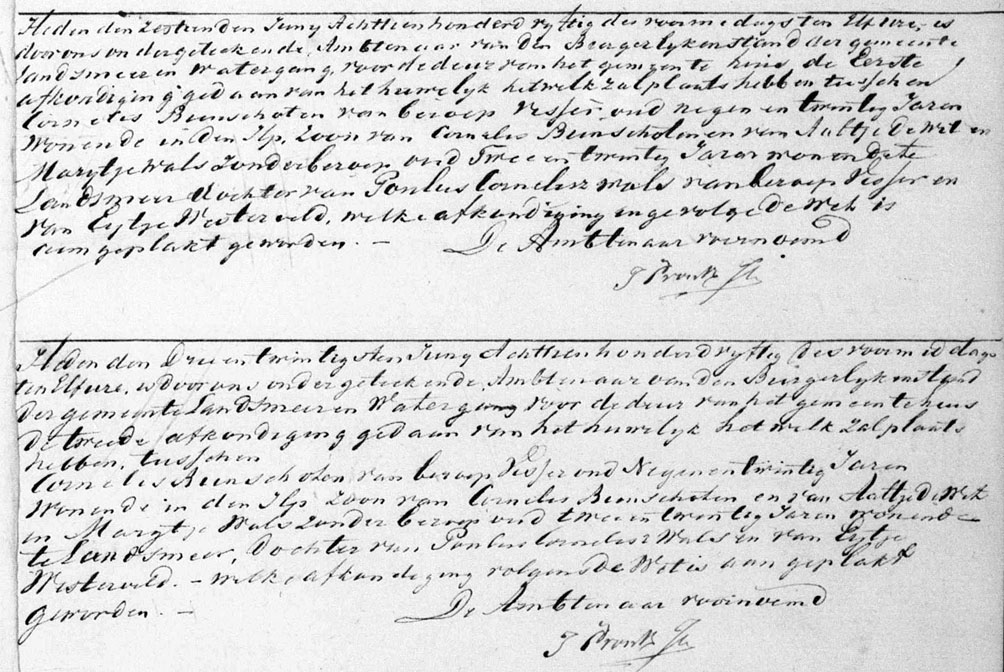 Heden den Zestienden Juny Achttien honderd vyftig des voormiddags ten Elf ure, is
door ons ondergeteekende, Ambtenaar van den Burgerlyken stand der gemeente
Landsmeer en Watergang, voor de deur van het gemeente huis de Eerste
afkondiging gedaan van het huwelyk het welk zal plaats hebben tusschen
Cornelis Beunschoten van beroep Visser, oud negen en twintig Jaren
Wonende in den Ilp, Zoon van Cornelis Beunschoten en van Aaltje de Wet en
Marytje Wals Zonder beroep oud Twee en twintig Jaren wonende te
Landsmeer dochter van Poulus Cornelisz Wals van beroep Visser en
van Eytje Westerveld, welke afkondiging ingevolge de Wet is
aangeplakt geworden. —
De Ambtenaar voornoemd
J Pronk Jz
Heden den Drie en twintigsten Juny Achttien honderd vyftig des voormiddags
ten Elf ure, is door ons ondergeteekende, Ambtenaar van den Burgerlyken stand
der gemeente Landsmeer en Watergang voor de deur van het gemeente huis
de tweede afkondiging gedaan van het huwelyk het welk zal plaats
hebben, tusschen
Cornelis Beunschoten van beroep Visser oud Negen en twintig Jaren
Wonende in den Ilp Zoon van Cornelis Beunschoten en van Aaltje de Wet
en Marytje Wals Zonder beroep oud twee en twintig Jaren wonende
te Landsmeer, Dochter van Poulus Cornelisz Wals en van Eytje
Westerveld. — welke afkondiging volgens de Wet is aangeplakt
geworden. —
De Ambtenaar voornoemd
J Pronk Jz